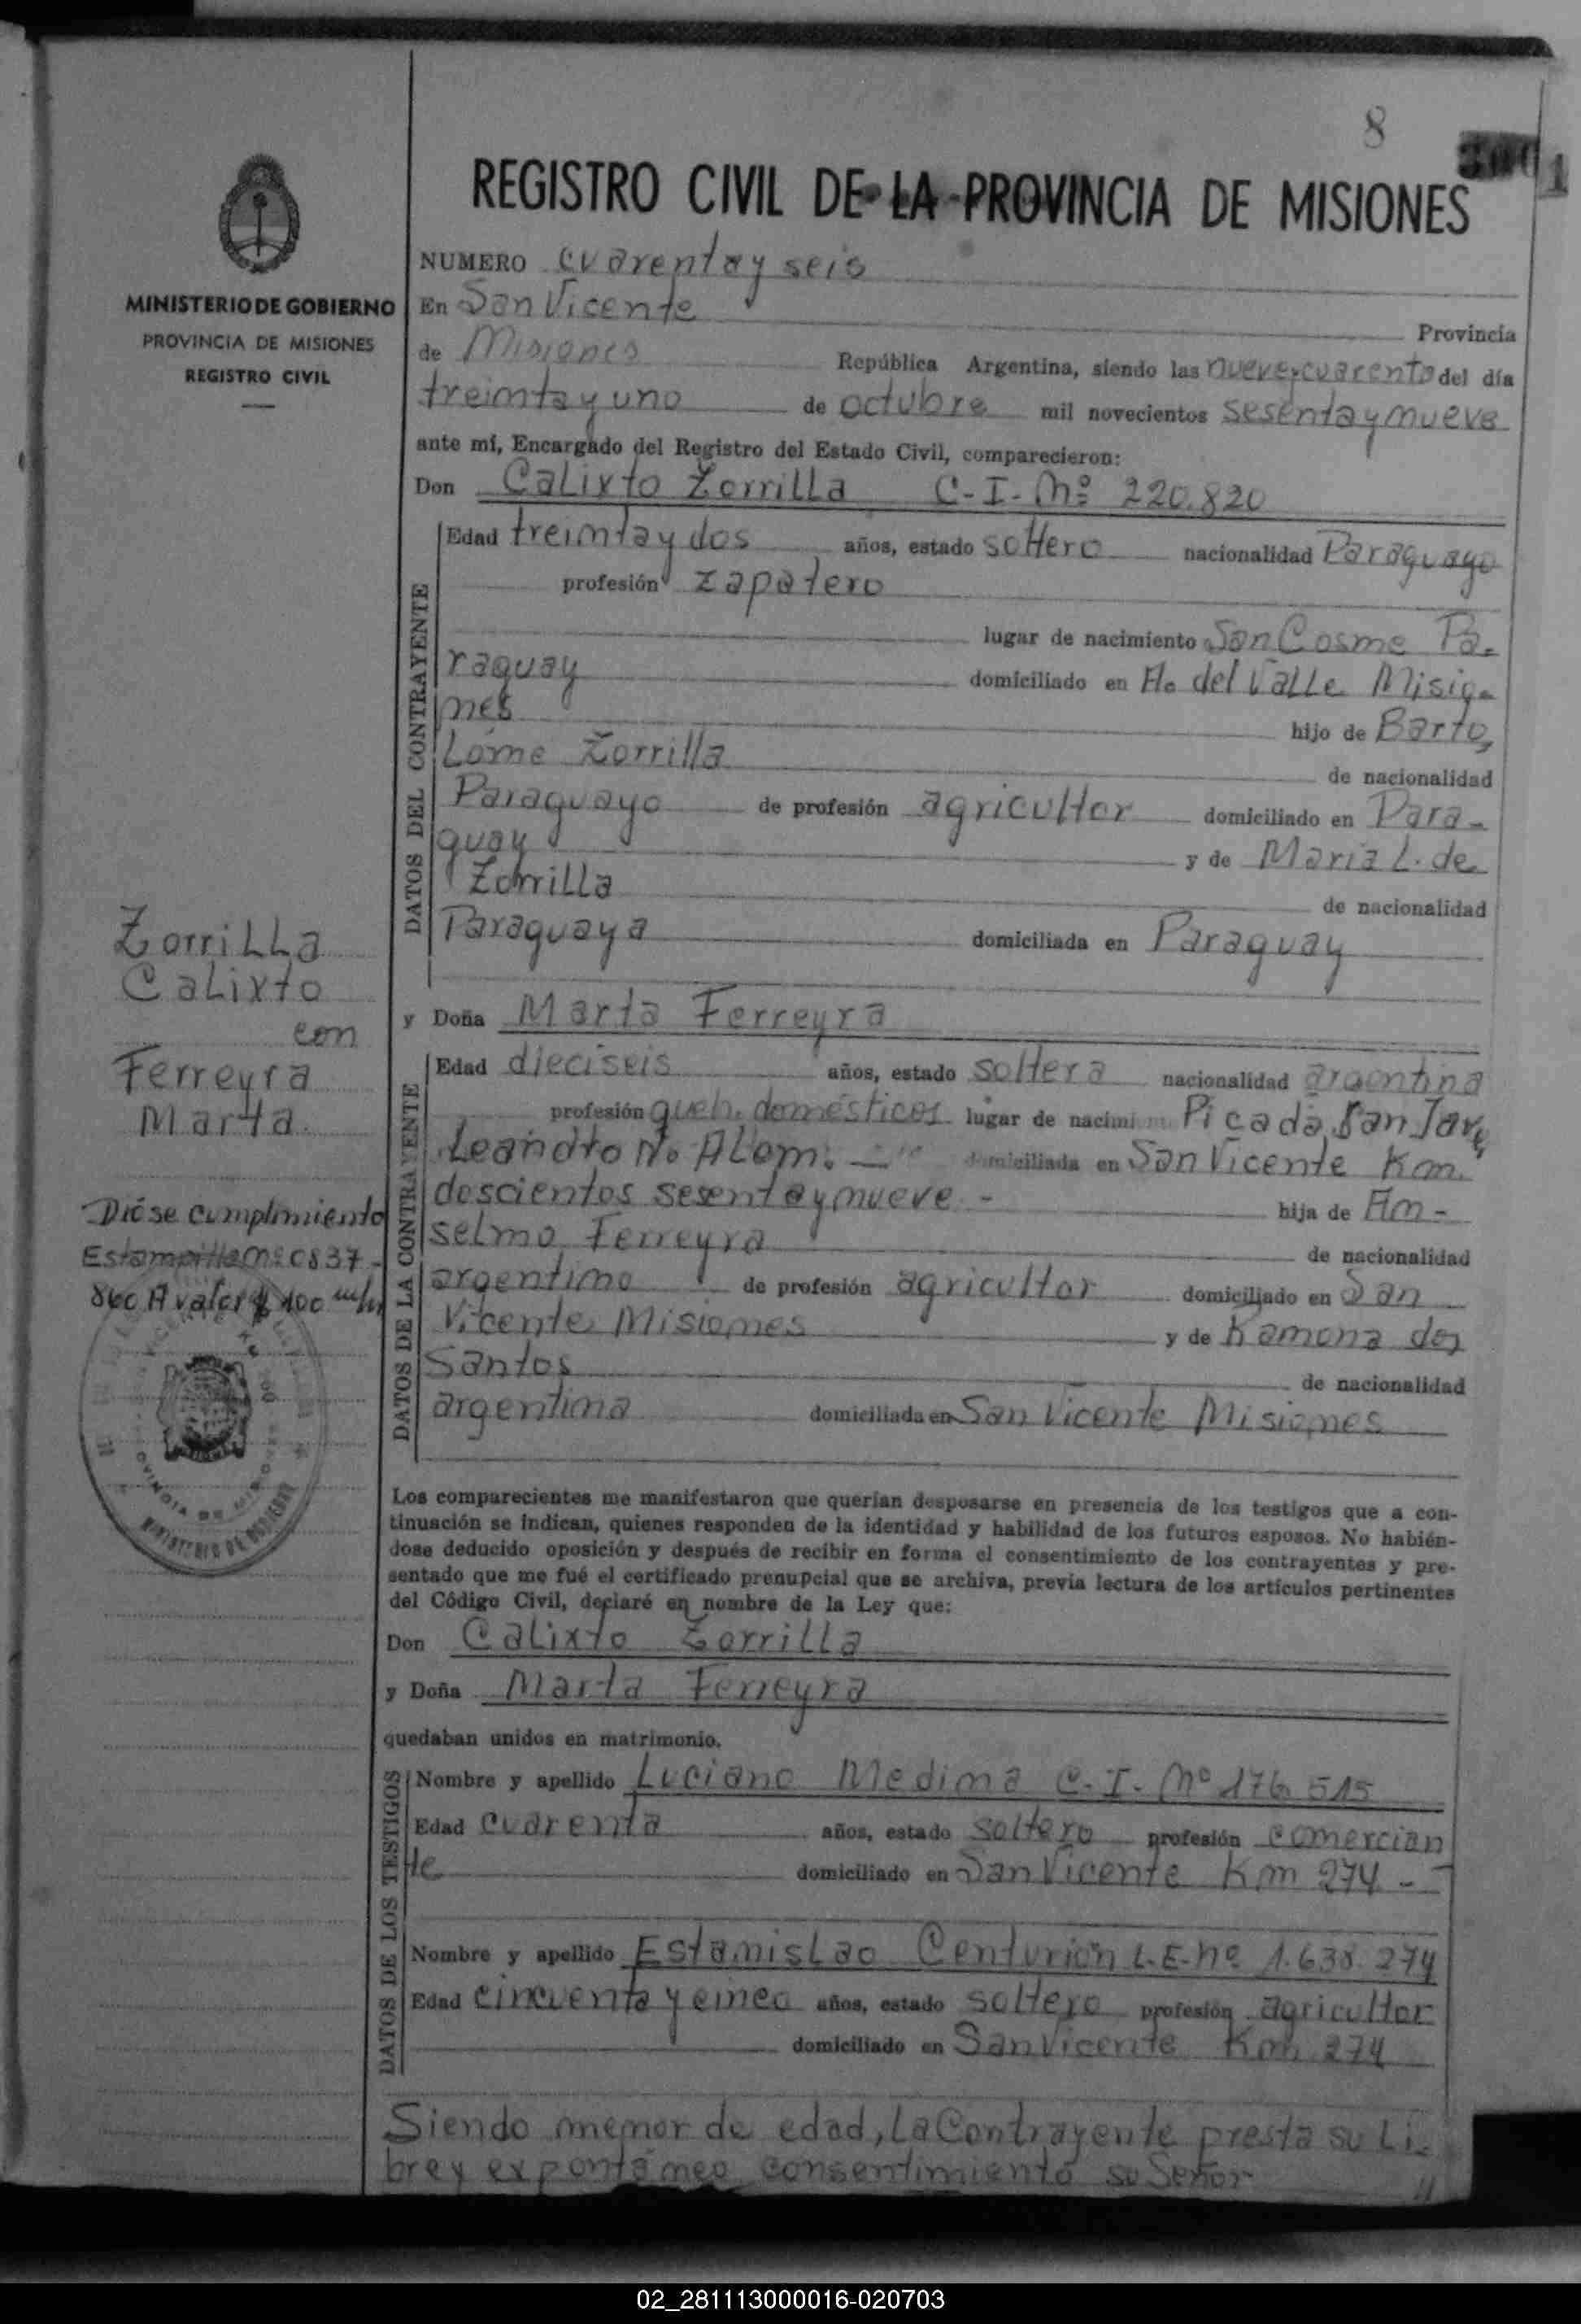 8
REGISTRO CIVIL DE LA PROVINCIA DE MISIONES
MINISTERIO DE GOBIERNO
PROVINCIA DE MISIONES
REGISTRO CIVIL
NUMERO cuarenta y seis
En San Vicente Provincia
de Misiones República Argentina, siendo las nueve y cuarenta del día
treinta y uno de octubre mil novecientos sesenta y nueve
ante mí, Encargado del Registro del Estado Civil, comparecieron:
Don Calixto Zorrilla C-I-Nº 220.820
DATOS DEL CONTRAYENTE
Edad treinta y dos años, estado soltero nacionalidad Paraguayo
profesión zapatero
lugar de nacimiento San Cosme Pa-
raguay domiciliado en A. del Valle Misio-
nes hijo de Barto,
Lome Zorrilla de nacionalidad
Paraguayo de profesión agricultor domiciliado en Para-
guay y de Maria L. de
Zorrilla de nacionalidad
Paraguaya domiciliada en Paraguay
y Doña Marta Ferreyra
DATOS DE LA CONTRAYENTE
Edad dieciseis años, estado soltera nacionalidad argentina
profesión queh. domésticos lugar de nacimi Picada San Jav,
Leandro N. ALem. domiciliada en San Vicente Km.
doscientos sesenta y nueve - hija de An-
selmo Ferreyra de nacionalidad
argentino de profesión agricultor domiciliado en San
Vicente Misiones y de Ramona dos
Santos de nacionalidad
argentina domiciliada en San Vicente Misiones
Zorrilla
Calixto
con
Ferreyra
Marta
Dióse cumplimiento
Estampilla Nº 0837-
860 A valor $ 100 m/n
MINISTERIO DE GOBIERNO
Los comparecientes me manifestaron que querían desposarse en presencia de los testigos que a con-
tinuación se indican, quienes responden de la identidad y habilidad de los futuros esposos. No habién-
dose deducido oposición y después de recibir en forma el consentimiento de los contrayentes y pre-
sentado que me fué el certificado prenupcial que se archiva, previa lectura de los artículos pertinentes
del Código Civil, declaré en nombre de la Ley que:
Don Calixto Zorrilla
y Doña Marta Ferreyra
quedaban unidos en matrimonio.
DATOS DE LOS TESTIGOS
Nombre y apellido Luciano Medina C.I. Nº 176 515
Edad cuarenta años, estado soltero profesión comercian
te domiciliado en San Vicente Km 274 -
Nombre y apellido Estanislao Centurión L.E. Nº 1.638.274
Edad cincuenta y cinco años, estado soltero profesión agricultor
domiciliado en San Vicente Km 274
Siendo menor de edad, La Contrayente presta su Li-
bre y expontáneo consentimiento su Señor
02_281113000016-020703